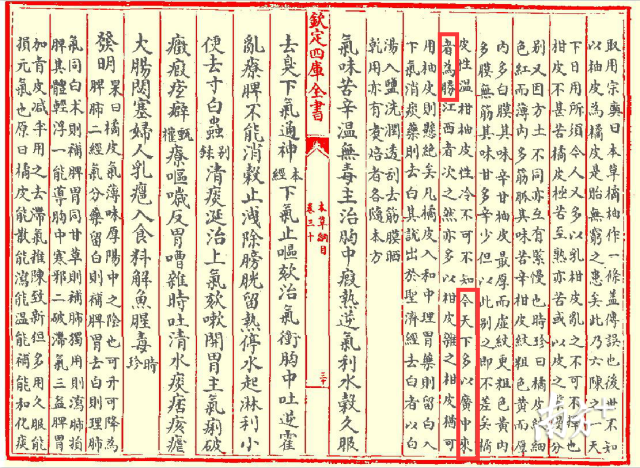 取用宗奭曰本草橘柚作一條蓋傳誤也後世不知
以柚皮為橘皮是貽無窮之患矣此乃六陳之一天
下日用所須今人又多以乳柑皮亂之不可不擇也
柑皮不甚苦橘皮極苦至熟亦苦或以皮之緊慢分
別又因方土不同亦互有緊慢也時珍曰橘皮紋細
色紅而薄內多筋脉其味苦辛柑皮紋粗色黃而厚
內多白膜其味辛甘柚皮最厚而虛紋更粗色黃內
多膜無筋其味甘多辛少但以此別之即不差矣橘
皮性溫柑柚皮性冷不可不知今天下多以廣中來
者為勝江西者次之然亦多以柑皮雜之柑皮猶可
用柚皮則懸絶矣凡橘皮入和中理胃藥則留白入
下氣消痰藥則去白其說出於聖濟經去白者以白
湯入鹽洗潤透刮去筋膜晒
乾用亦有煑焙者各隨本方
欽定四庫全書
本草綱目
卷三十
氣味苦辛溫無毒主治胸中瘕熱逆氣利水穀久服
去臭下氣通神本經下氣止嘔欬治氣衝胸中吐逆霍
亂療脾不能消穀止洩除膀胱留熱停水起淋利小
便去寸白蟲别錄清痰涎治上氣欬嗽開胃主氣痢破
癥瘕痃癖甄權療嘔噦反胃嘈雜時吐清水痰痞痎瘧
大腸閟塞婦人乳癰入食料解魚腥毒時珍
發明杲曰橘皮氣薄味厚陽中之陰也可升可降為
脾肺二經氣分藥留白則補脾胃去白則理肺
氣同白术則補脾胃同甘草則補肺獨用則瀉肺損
脾其體輕浮一能導胸中寒邪二破滯氣三益脾胃
加青皮減半用之去滯氣推陳致新但多用久服能
損元氣也原曰橘皮能散能瀉能溫能補能和化痰
南方+